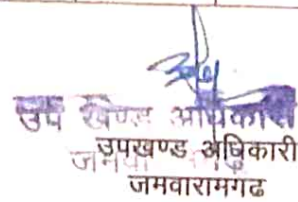 उप खण्ड अधिकारी
उपखण्ड अधिकारी
जमवारामगढ